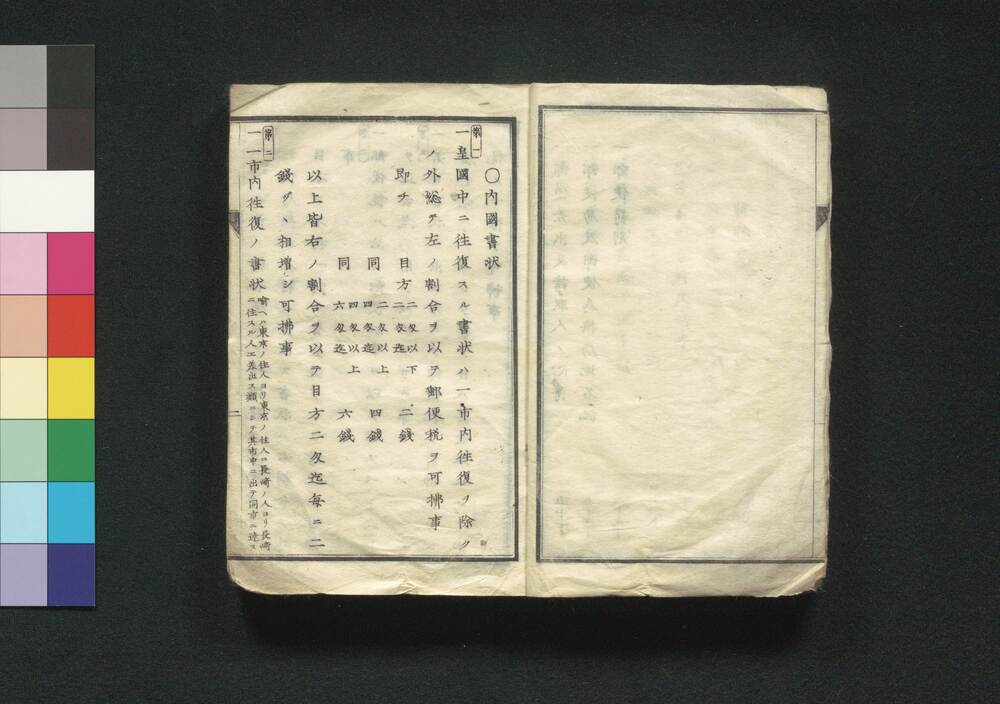 〇内國書狀
第一
一皇國中ニ往復スル書狀ハ一市内往復ヲ除ク
ノ外総テ左ノ割合ヲ以テ郵便税ヲ可拂事
即チ 目方 二匁以下 二匁迄 二錢
同 二匁以上 四匁迄 四錢
同 四匁以上 六匁迄 六錢
以上皆右ノ割合ヲ以テ目方二匁迄每ニ二
錢ヅヽ相增シ可拂事
第二
一一市内往復ノ書狀
喩ヘハ東京ノ住人ヨリ東京ノ住人エ長崎ノ人ヨリ長崎
ニ住スル人エ差出ス類ニシテ其市中ニ出テ同市ニ達ス
二